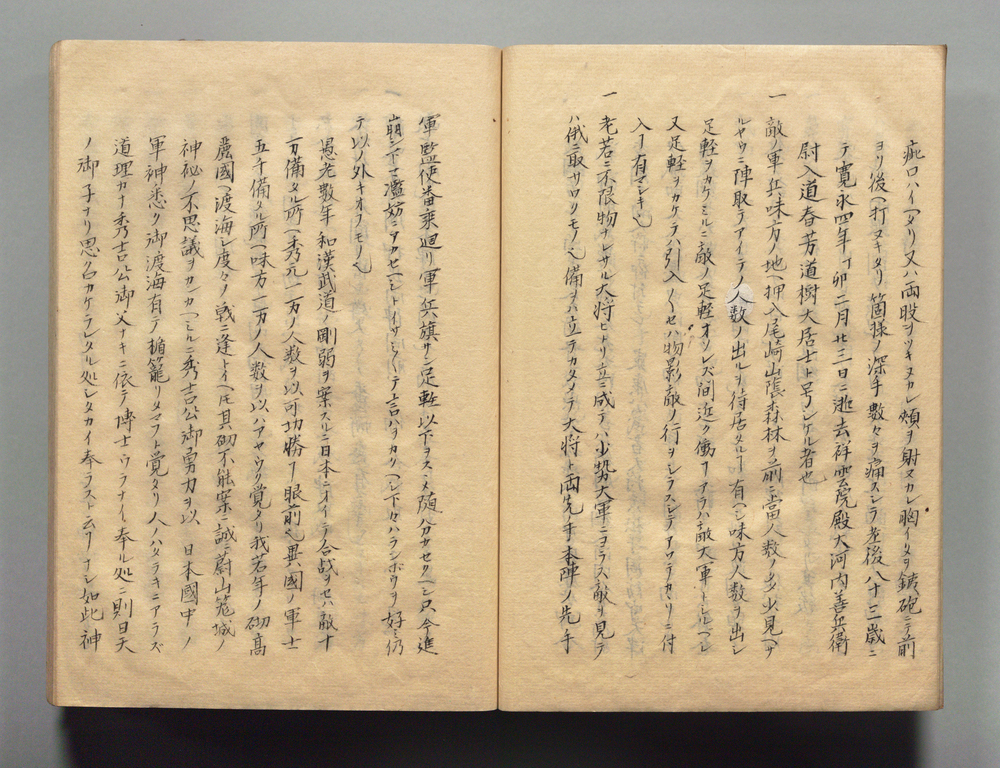 疵口ハイ一タリ又ハ両股ヲツキヌカレ頬ヲ射ヌカレ胸イタヲ鉄砲ニテ前
ヨリ後ヘ打ヌキタリ箇様ノ深手数々ヲ痛スシテ老後八十三歳ニ
テ寛永四年丁卯二月廿三日ニ逝去祥雲院殿大河内善兵衛
尉入道春芳道樹大居士ト号シケル者也
一
敵ノ軍兵味方ノ地ヘ押入尾崎山陰森林ヲ前ニ當人数ノ多少見ヘサ
ルヤウニ陣取テアイテノ人数ノ出ルヲ待居タルヿ有ヘシ味方人数ヲ出シ
足軽ヲカケミルニ敵ノ足軽オソレズ間近ク働ヿアラハ敵大軍トシルヘシ
又足軽ヲカケテハ引入〱セハ物影敵ノ行ヲシラスシテアワテカヽリニ付
入ヿ有マシキ也
一
老若ニ不限物ナレサル大将ヒトリ立ニ成テハ小勢大軍ニヨラス敵ヲ見テ
ハ俄ニ取サワクモノ也備ヲハ立テカタメテ大将ト両先手本陣ノ先手
軍監使番乗廻リ軍兵旗サシ足軽以下ヲスヽメ随分カセクヘシ只今進
崩シテコソ濫妨ニアカセヘシトイサミ〱テ言ハヲカケヘシ下々ハランボウヲ好ミ仍
テ以ノ外キオフモノ也
一
愚老数年和漢武道ノ剛弱ヲ案スルニ日本ニオイテ合戦ヲセハ敵十
万備タル所ヘ秀元一万ノ人数ヲ以可功勝ヿ眼前也異國ノ軍士
五千備タル所ヘ味方一万ノ人数ヲ以ハアヤウク覚タリ我若年ノ砌高
麗國ヘ渡海シ度々ノ戦ニ逢トイヘ𪜈其砌不能案誠ニ蔚山篭城ノ
神秘ノ不思議ヲカンカヘミルニ秀吉公御勇力ヲ以日本國中ノ
軍神悉ク御渡海有テ楯籠リタマフト覚タリ人ハタラキニアラズ
道理カナ秀吉公御父ナキニ依テ博士ウラナイ奉ル処ニ則日天
ノ御子ナリ思召カケラレタル処シタカイ奉ラスト云ヿナシ如此神